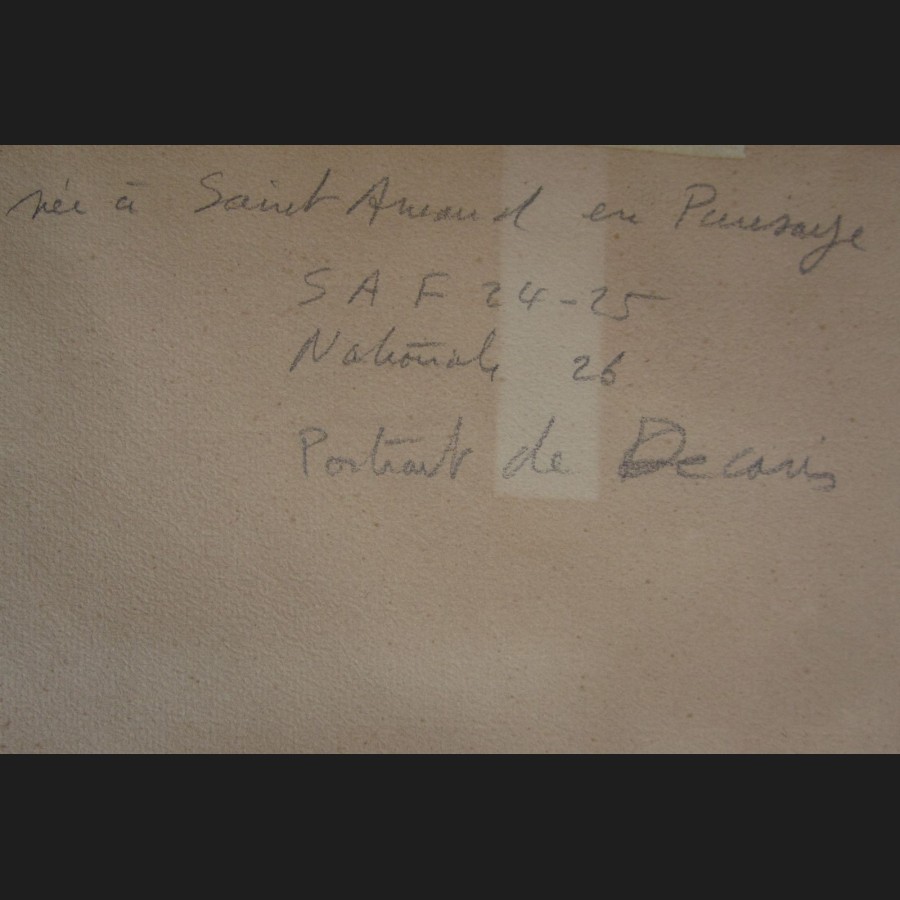 née à Saint Amand en Puisaye
S A F 24-25
Nationale 26
Portrait de Decaris